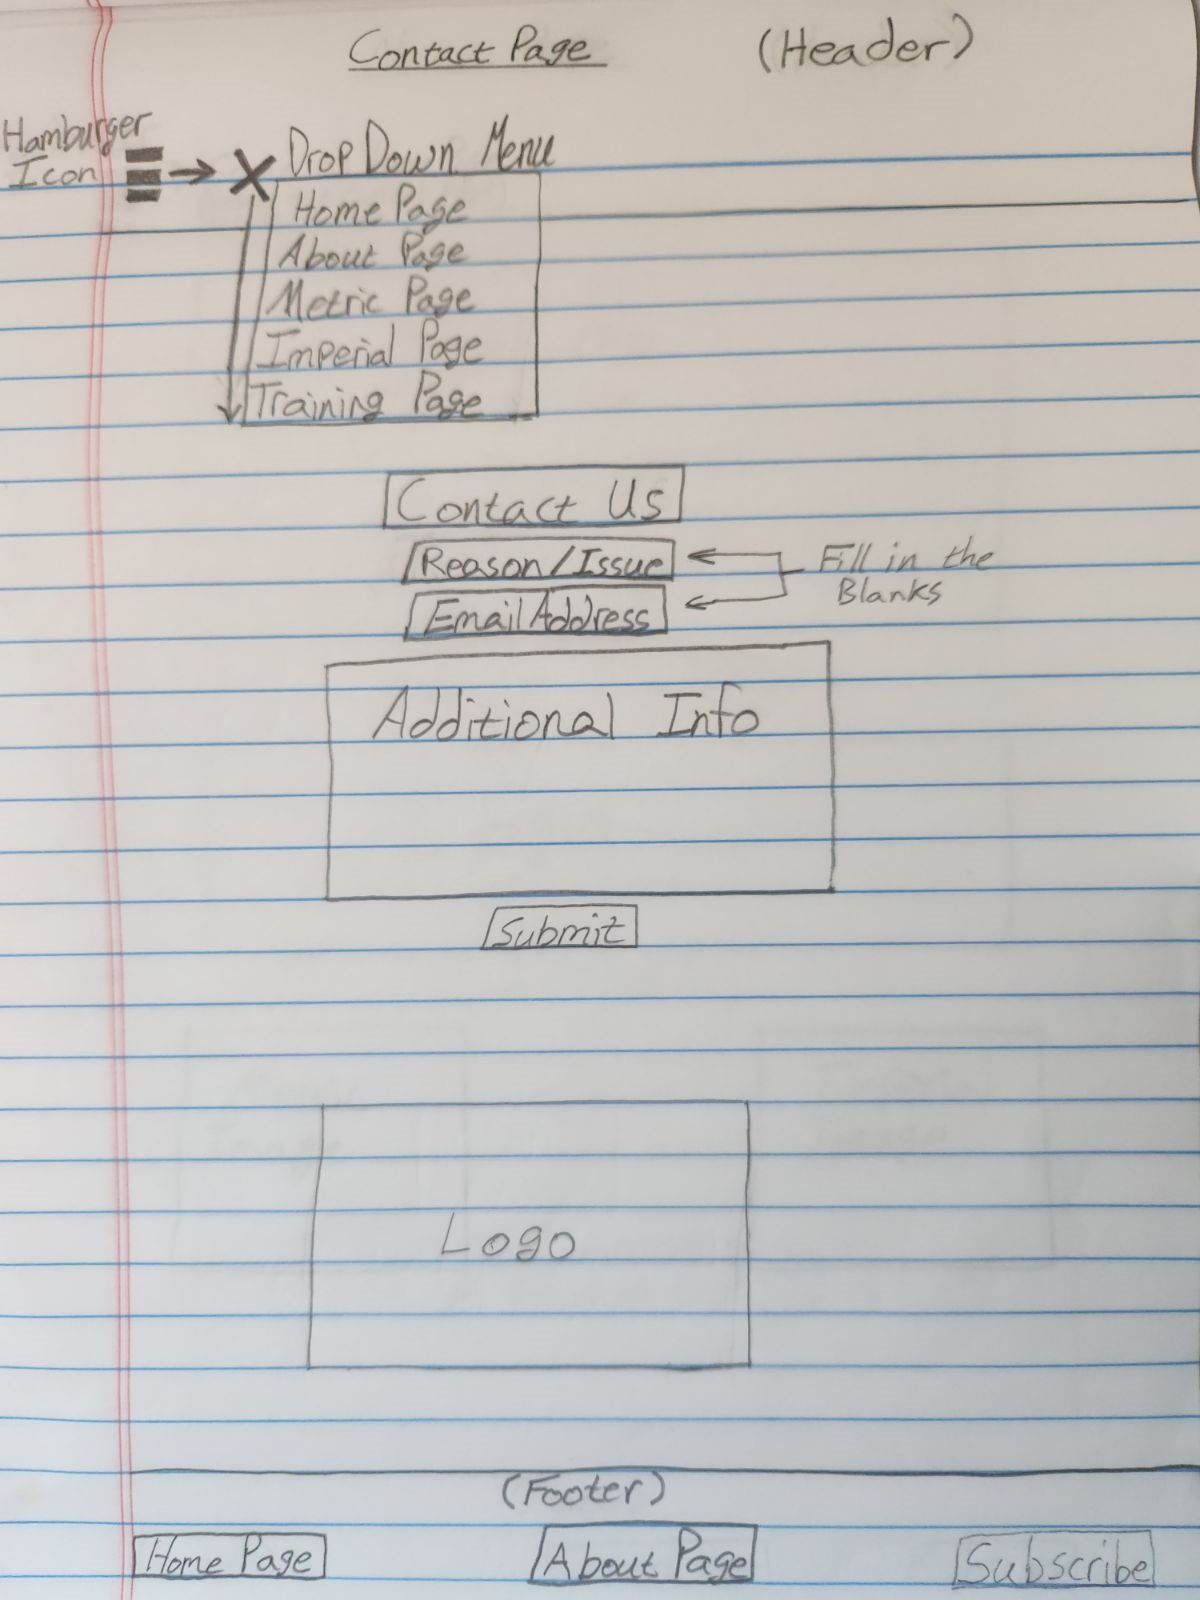 Contact Page (Header)
Hamburger
Icon
Drop Down Menu
Home Page
About Page
Metric Page
Imperial Page
Training Page
Contact Us
Reason/Issue
Email Address
Fill in the
Blanks
Additional Info
Submit
Logo
(Footer)
Home Page About Page Subscribe